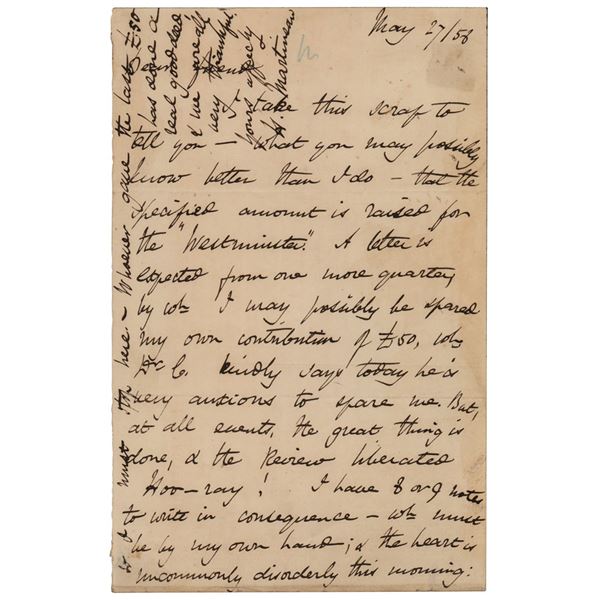 May 27/58
Dear Friend
I take this scrap to
tell you – what you may possibly
know better than I do – that the
specified amount is raised for
the "Westminster." A letter is
expected from one more quarter,
by wh I may possibly be spared
my own contribution of £50, wh
Dr C. kindly says today he is
very anxious to spare me. But,
at all events, the great thing is
done, & the Review liberated
Hoo–ray! I have 8 or 9 notes
to write in consequence – wh must
be by my own hand; & the heart is
uncommonly disorderly this morning:
so I must stop here. – Whoever gave the last £50
has done a
real good deed
& we are all
very thankful
Yours affecly
H. Martineau